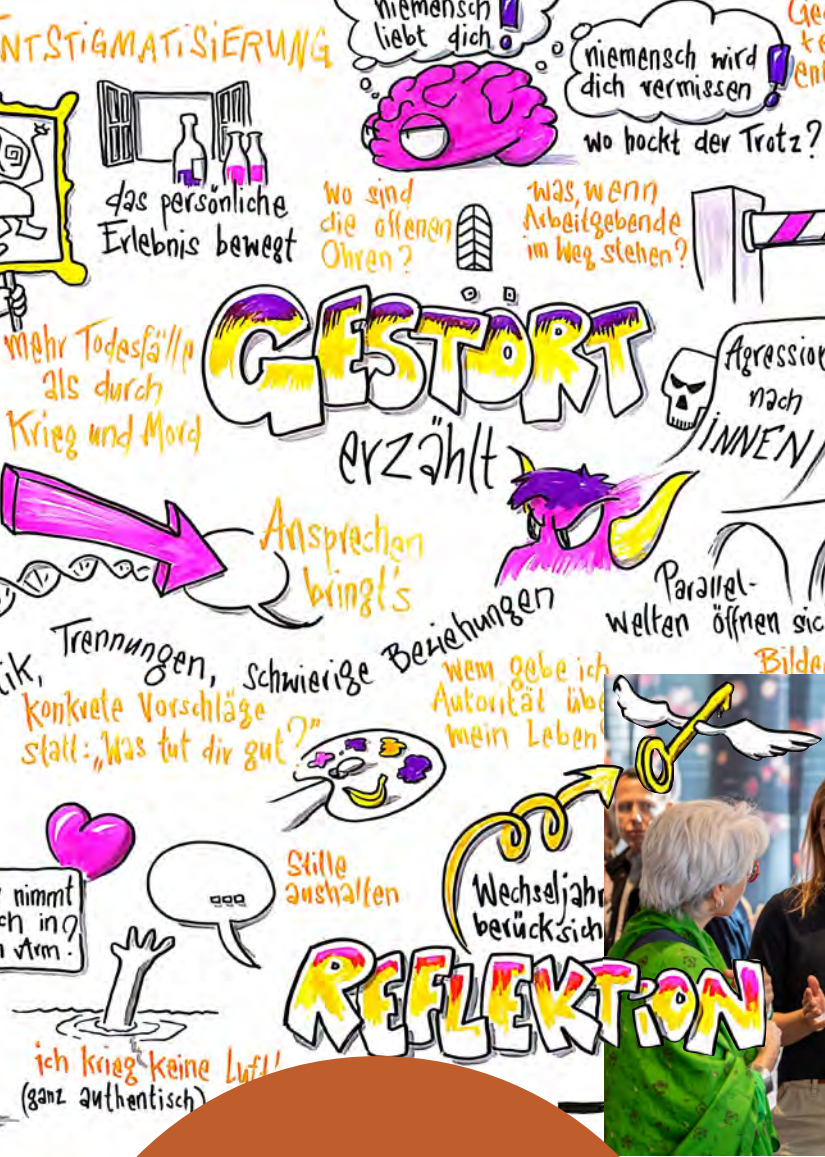 NTSTiGMATiSiERUNG
niemensch
liebt dich!
niemensch wird
dich vermissen!
wo hockt der Trotz?
das persönliche
Erlebnis bewegt
wo sind
die offenen
Ohren?
was, wenn
Arbeitgebende
im Weg stehen?
mehr Todesfälle
als durch
Krieg und Mord
GESTÖRT
erzählt
Agression
nach
iNNEN
Ansprechen
bringt's
Parallel-
welten öffnen sic
Trennungen, schwierige Beziehungen
konkrete Vorschläge
statt: „Was tut dir gut?"
wem gebe ich
Autorität übe
mein Leben
Bilde
nimmt
ch in
Arm?
Stille
aushalten
Wechseljahr
berücksich
REFLEKTiON
ich krieg keine Luft!
(ganz authentisch)